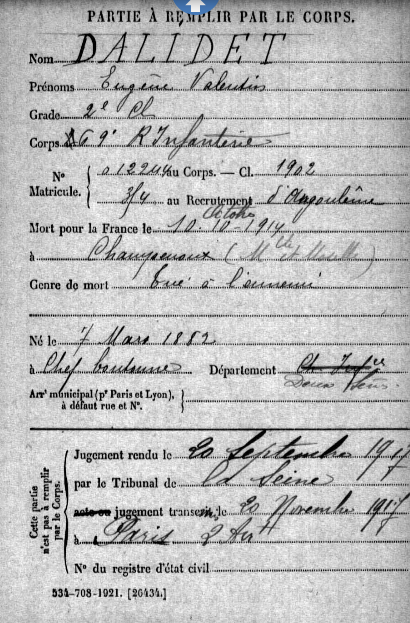 PARTIE À REMPLIR PAR LE CORPS.
Nom DALIDET
Prénoms Eugène Valentin
Grade 2e Cl
Corps 69e R Infanterie
N° Matricule. { 01224 au Corps. — Cl. 1902
au Recrutement d'Angoulême
Octobre
Mort pour la France le 10-10-1914
à Champenoux (Mthe et Moselle)
Genre de mort Tué à l'ennemi
Né le 7 Mars 1882
à Chef boutonne Département
Deux Sèvres
Arrt municipal (pr Paris et Lyon), à défaut rue et N°. }
Cette partie n'est pas à remplir par le Corps.
Jugement rendu le 20 Septembre 1917
par le Tribunal de la Seine
acte ou jugement transcrit le 20 Novembre 1917
à Paris 2 Arrt
N° du registre d'état civil
534-708-1921. [26434.]